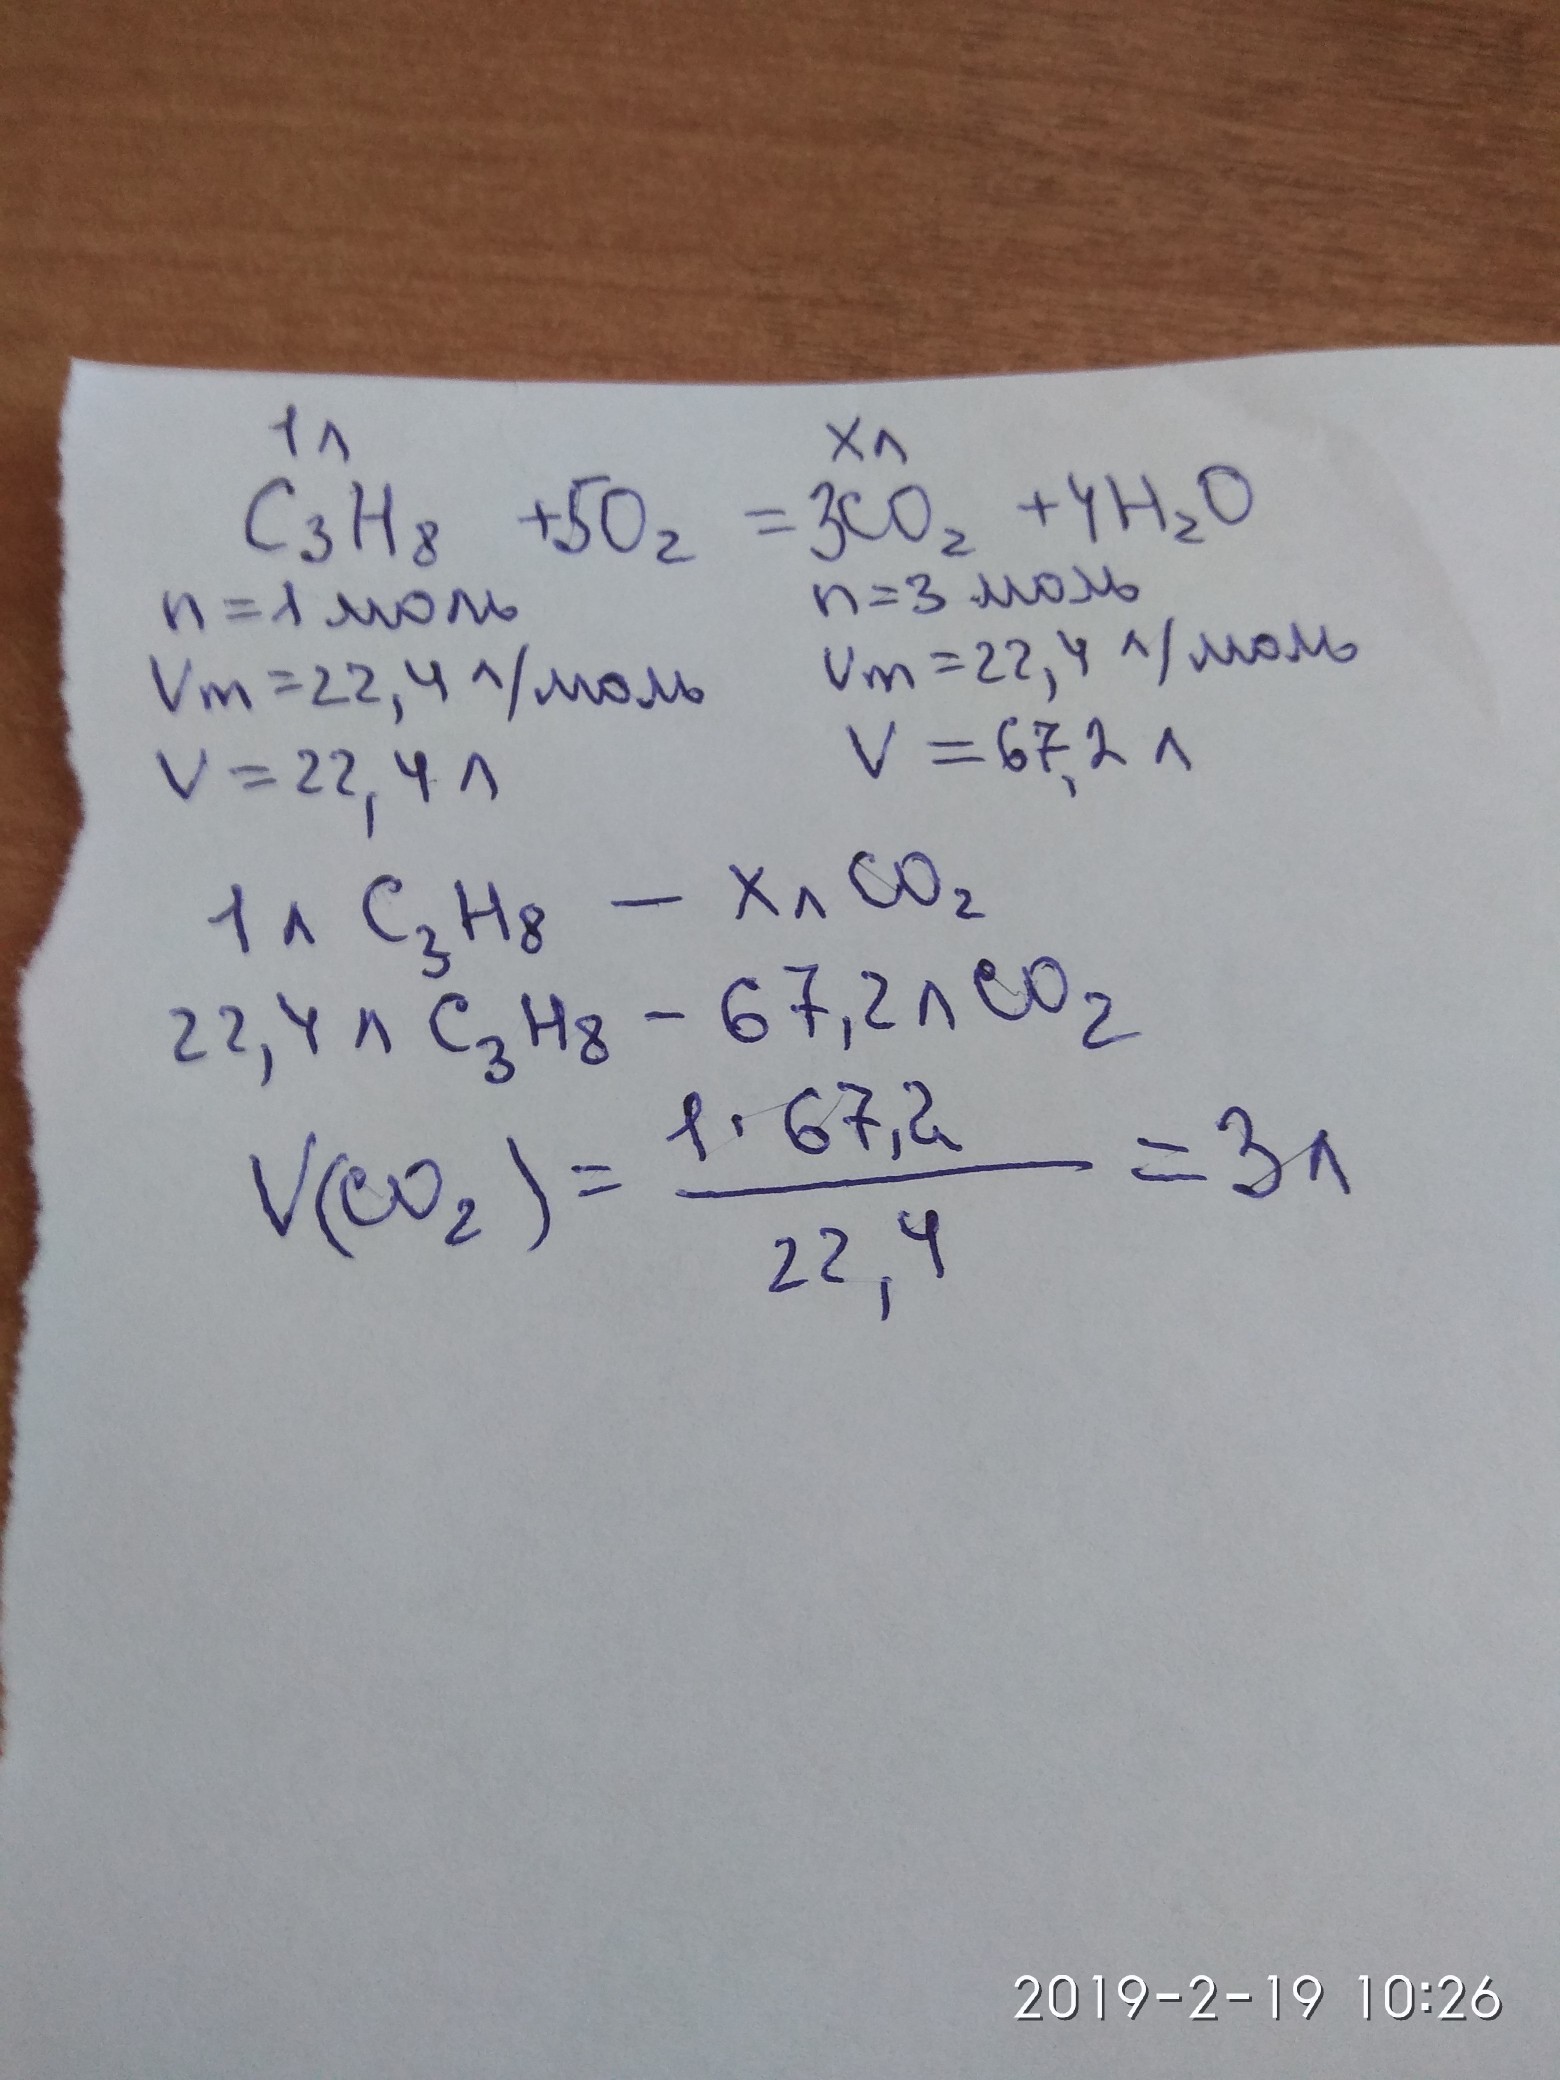 1л xл
C₃H₈ +5O₂ =3CO₂ +4H₂O
n=1моль n=3 моль
Vm=22,4 л/моль Vm=22,4 л/моль
V=22,4л V=67,2 л
1л C₃H₈ — xл CO₂
22,4л C₃H₈ - 67,2л CO₂
V(CO₂) = 1·67,2 / 22,4 = 3л
2019-2-19 10:26